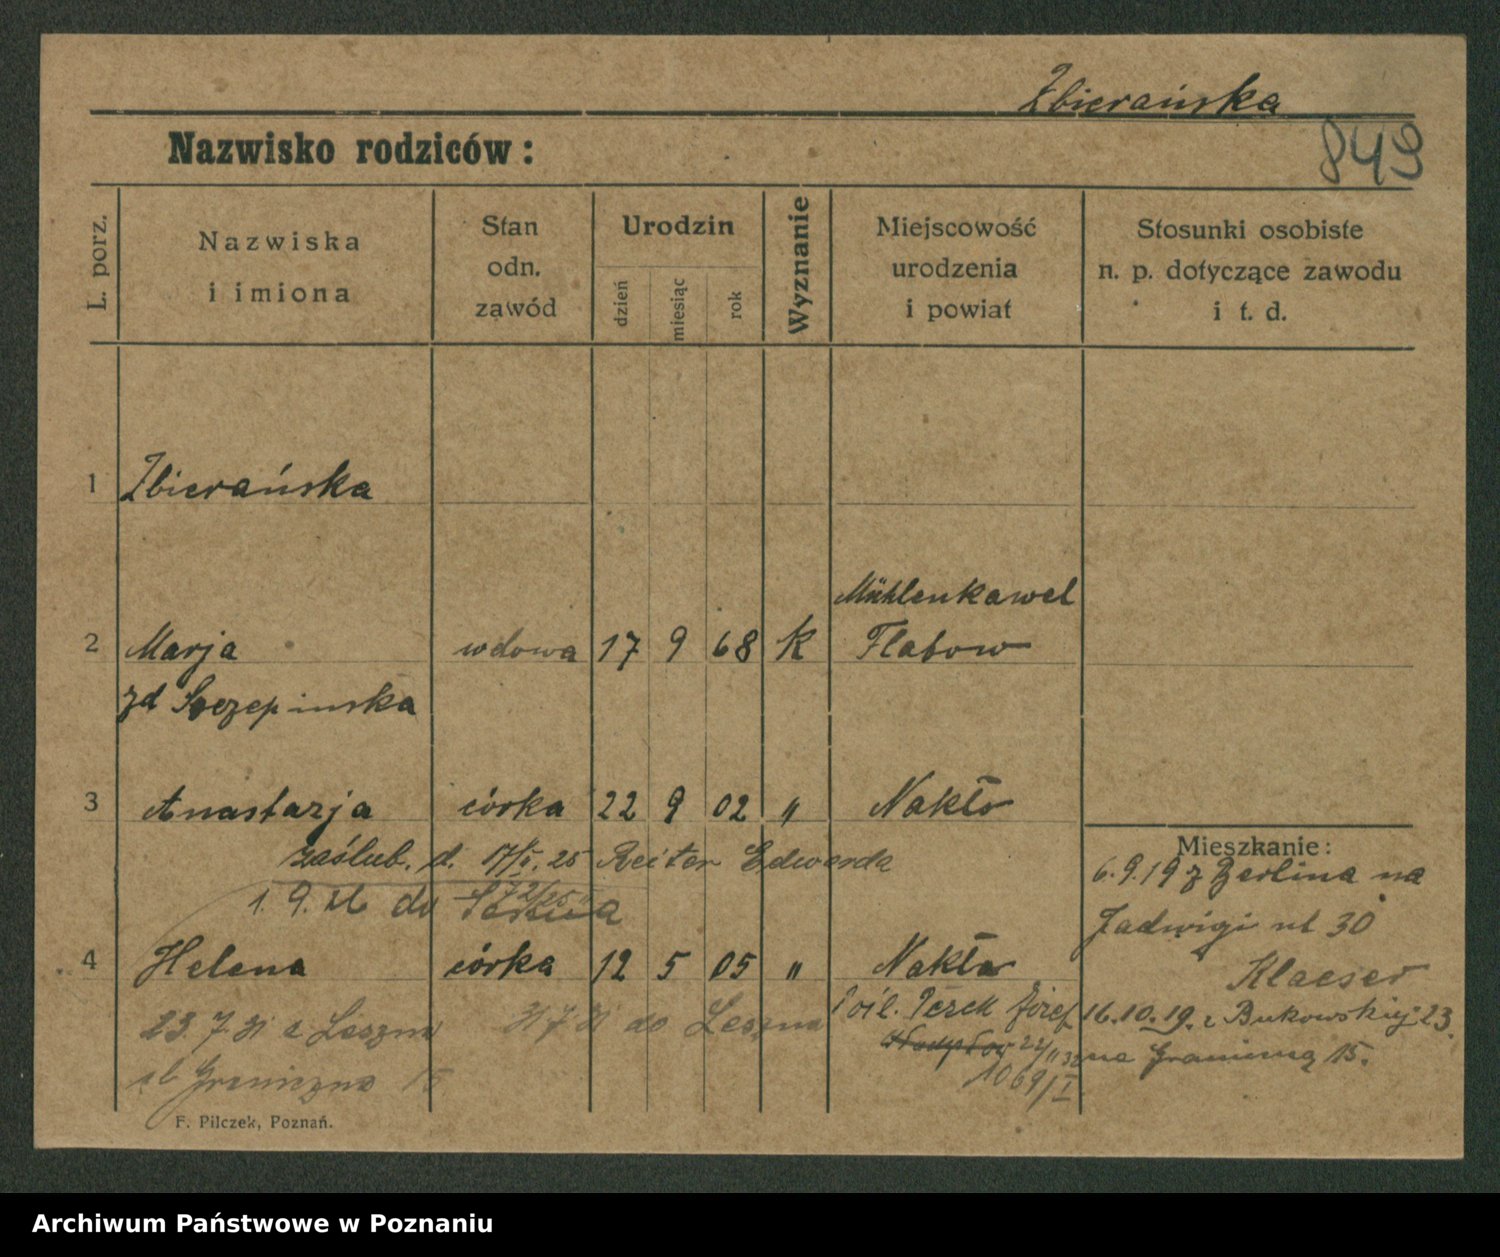 Zbierańska
849
Nazwisko rodziców :
L. porz.
Nazwiska
i imiona
Stan
odn.
zawód
Urodzin
dzień
miesiąc
rok
Wyznanie
Miejscowość
urodzenia
i powiat
Stosunki osobiste
n. p. dotyczące zawodu
i t. d.
1 Zbierańska
Mühlenkawel
2 Marja wdowa 17 9 68 K Flatow
zd Szczepinska
3 Anastazja córka 22 9 02 " Nakło
zaślub. d. 17/5. 25 Reiter Edwarda
1. 9. do
4 Helena córka 12 5 05 " Nakło
23. 7. 31 z Leszna 31 7 31 do Leszna
ul Graniczna 15
Józef
22/11 32
1069/I
Mieszkanie:
6. 9. 19 z Berlina na
Jadwigi ul 30
Klaeser
16. 10. 19. z Bukowskiej 23
na Graniczną 15.
F. Pilczek, Poznań.
Archiwum Państwowe w Poznaniu